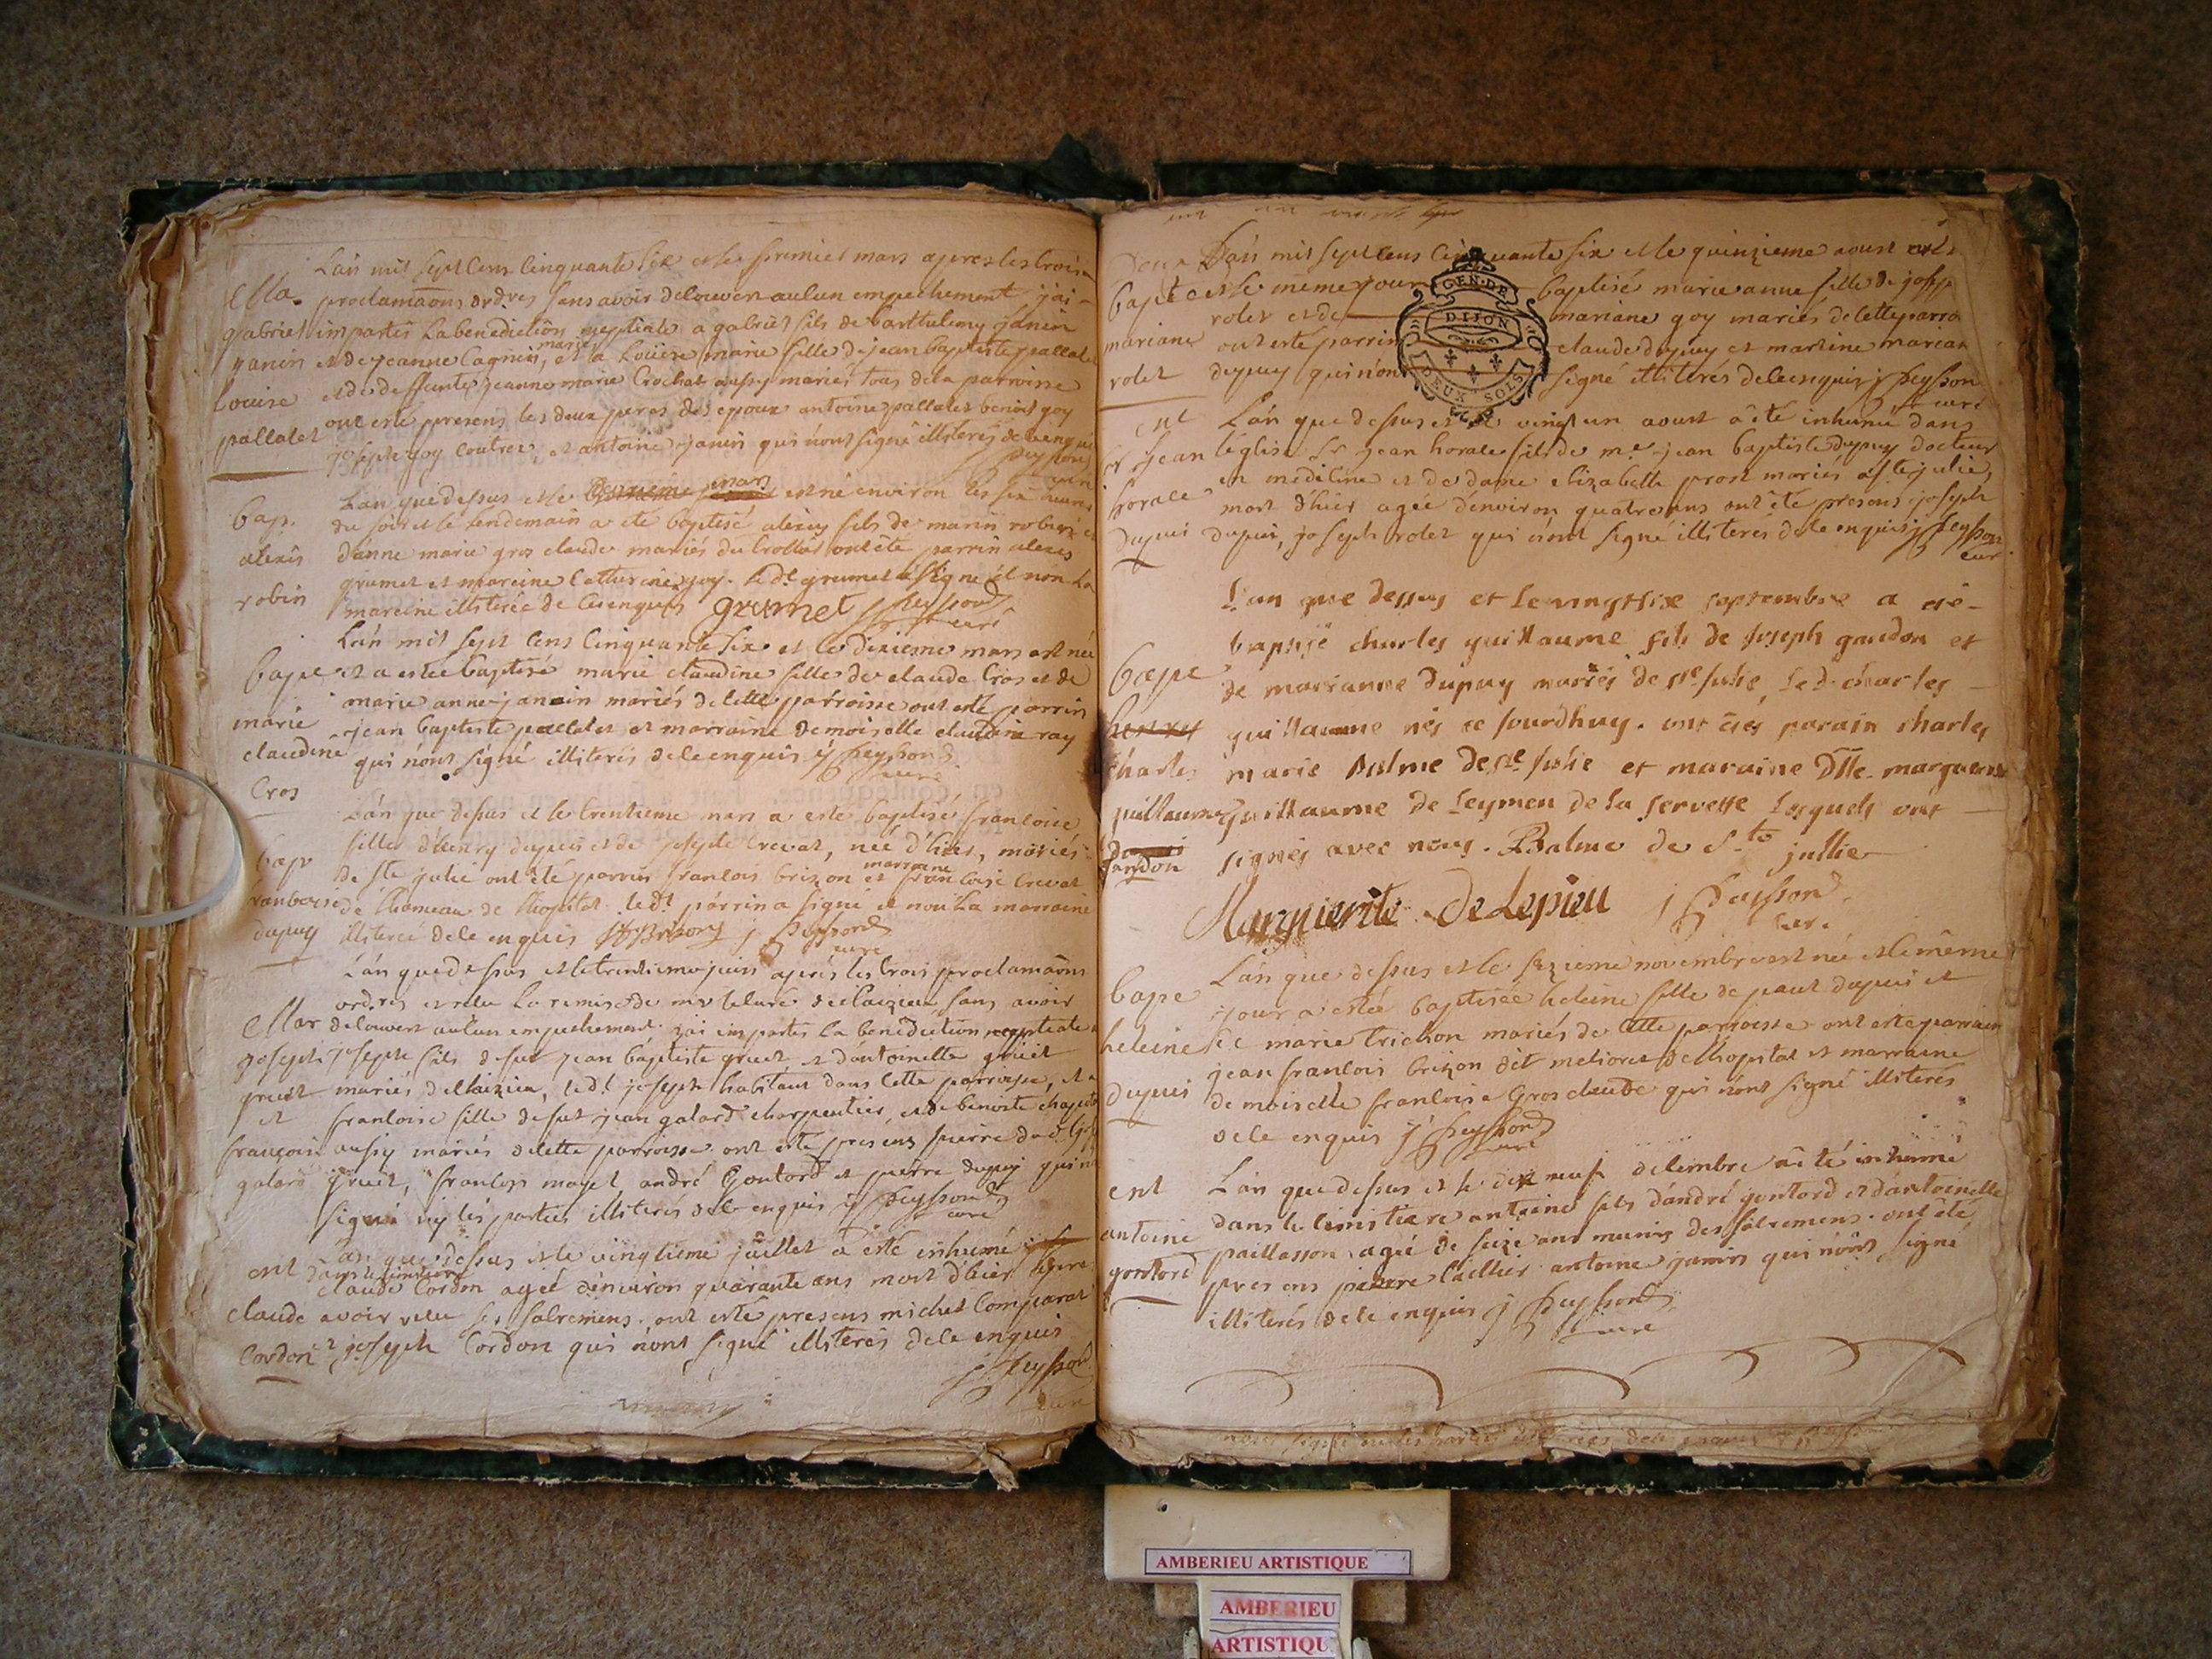 L'an mil sept cens cinquante six et le premier mars apres les trois
Ma. proclamaõns ordres sans avoir decouvert aucun empechement j'ai
gabriel imparti la benediction nuptiale a gabriel fils de barthelemy janin
janin et de jeanne Cagnin, mariés et a Loüise marie fille de jean baptiste pallatet
Louise et de deffunte jeanne marie Crochat aussy mariés tous de la parroisse
pallatet ont esté presens les deux peres des epoux antoine pallatet benoit goy
joseph goy et antoine janin qui n'ont signé illiterés de ce enquis
j peysson curé
L'an que dessus et le mars est né environ les six heures
bap. du soir et le lendemain a eté baptisé alexis fils de marin robin et
alexis d'anne marie gros claude mariés du ont été parrin alexis
robin grumet et marraine Catherine goy. le dt grumet a signé et non la
marraine illiterée de ce enquis grumet j peysson curé
L'an mil sept cens cinquante six et le dixieme mars est née
bapt et a estée baptisé marie claudine fille de claude Cros et de
marie anne janin mariés de cette parroisse ont esté parrin
marie jean baptiste pallatet et marraine demoiselle claudine ray
claudine qui n'ont signé illiterés de ce enquis j peysson curé
Cros
L'an que dessus et le trentieme mars a este baptisé francoise
fille d'henry dupuis et de josephe Crevat, née d'hier, mariés
bap de ste julie ont été parrin francois brizon et marraine francoise Crevat
francoise de l'hameau de l'hopital le dt parrin a signé et non la marraine
dupuy illiterée de ce enquis brizon j peysson curé
L'an que dessus et le trentieme juin après les trois proclamaõns
ordres et veu la remise de mr le curé de sans avoir
Mar decouvert aucun empechement j'ai imparti la benediction nuptiale a
joseph joseph fils de feu jean baptiste gruet et d'antoinette gruet
gruet mariés de le dt joseph habitant dans cette parroisse, et a
et francoise fille de feu jean galard charpentier et de benoite
françoise aussy mariés de cette parroisse ont esté presens pierre
galard gruet, francois mayet andré Gontard et pierre dupuy qui n'ont
signé ny les parties illiterés de ce enquis j peysson curé
L'an que dessus et le vingtieme juillet a esté inhumé
ent dans le cimetiere claude Cordon agé d'environ quarante ans mort d'hier apres
claude avoir reçu ses sacremens. ont esté presens michel Comparat
Cordon et joseph Cordon qui n'ont signé illiterés de ce enquis
j peysson
curé
L'an mil sept cens cinquante six et le quinzieme aoust
bapt et le meme jour baptisé marie anne fille de joseph
rolet et de mariane goy mariés de cette parro
mariane ont esté parrin claude dupuy et marrine marian
rolet dupuy qui n'ont signé illiterés de ce enquis j peysson
curé
GEN. DE
DIJON
DEUX SOLS
ent L'an que dessus et le vingt un aoust a été inhumé dans
sr jean l'église sr jean horace fils de me jean baptiste dupuy docteur
horace en medecine et de dame elizabette prost mariés a ste julie,
mort d'hier agée d'environ quatre ans ont été presens joseph
dupui dupui, joseph rolet qui n'ont signé illiterés de ce enquis j peysson
curé
L'an que dessus et le vingt six septembre a été
baptisé charles guillaume fils de joseph gandon et
bapt de marianne Dupuy mariés de ste julie, le d. charles
henry guillaume nés ce jourdhuy. ont étés parain charles
charles marie Balme de ste julie et maraine Dlle. marguerite
guillaume guillaume de Leymen de la servette lesquels ont
gandon signés avec nous. Balme de Ste jullie
Marguerite De Lepieu j Peysson
Cur.
L'an que dessus et le sezieme novembre est née et le même
bapt jour a estée baptisée heleine fille de paul dupui et
heleine de marie trichon mariés de cette parroisse ont esté parrain
jean francois brizon dit de l'hopital et marraine
dupui demoiselle francoise Gros claude qui n'ont signé illiterés
de ce enquis j peysson
curé
L'an que dessus et le dix neuf decembre a été inhumé
ent dans le cimetiere antoine fils d'andré gontard et d'antoinette
antoine paillasson agé de seize ans munis des sacremens. ont été
gontard presens pierre antoine janin qui n'ont signé
illiterés de ce enquis j peysson
curé
AMBERIEU ARTISTIQUE
AMBERIEU
ARTISTIQU